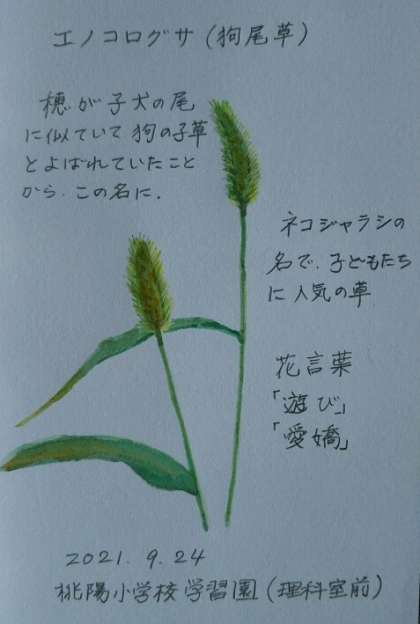 エノコログサ(狗尾草)
穂が子犬の尾
に似ていて狗の子草
とよばれていたこと
から、この名に.
ネコジャラシの
名で、子どもたち
に人気の草
花言葉
「遊び」
「愛嬌」
2021.9.24
桃陽小学校学習園(理科室前)